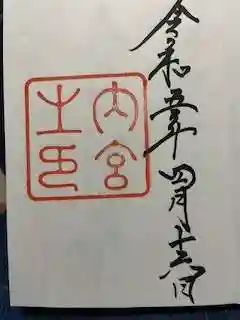 令和五年四月十六日
内宮
之印